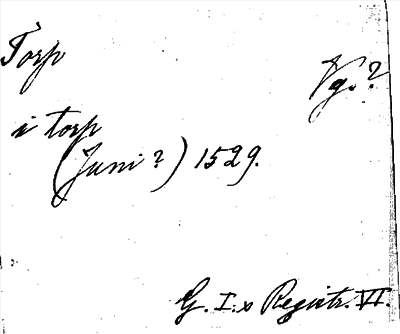 Torp
Vg.?
i torp
(Juni?) 1529.
G. I:s Registr. VI.